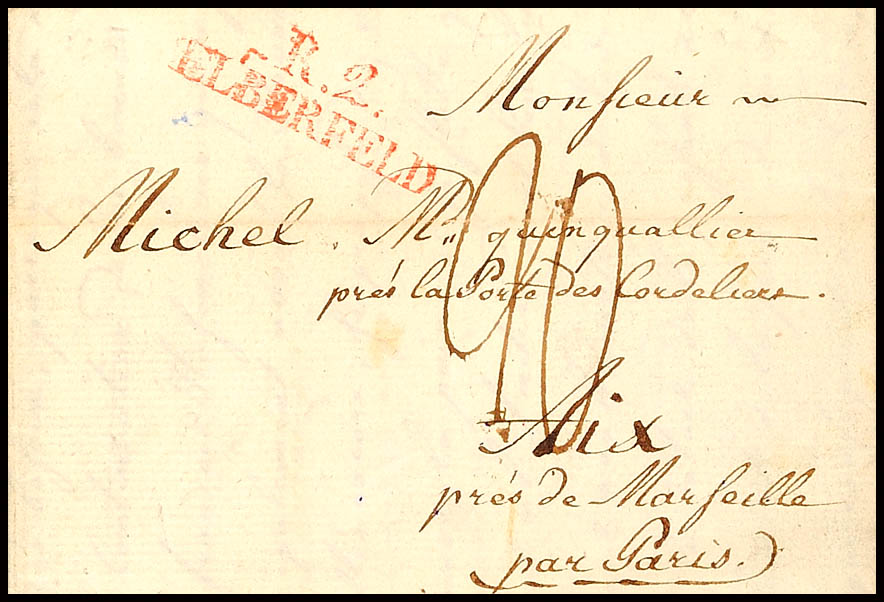 R. 2.
ELBERFELD
Monsieur
Michel. Md quinquallier
prés la Porte des Cordeliers.
Aix
prés de Marseille
par Paris.